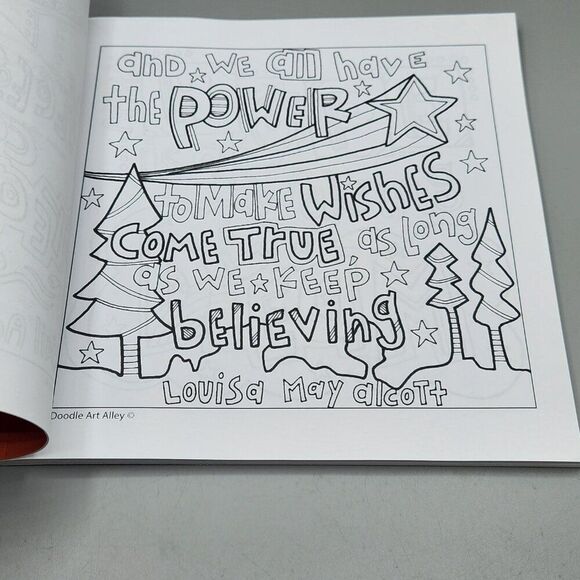 and we all have
the POWER
to Make WisHES
COME TRUE, as long
as WE KEEP
believing
Louisa May alcott
Doodle Art Alley ©